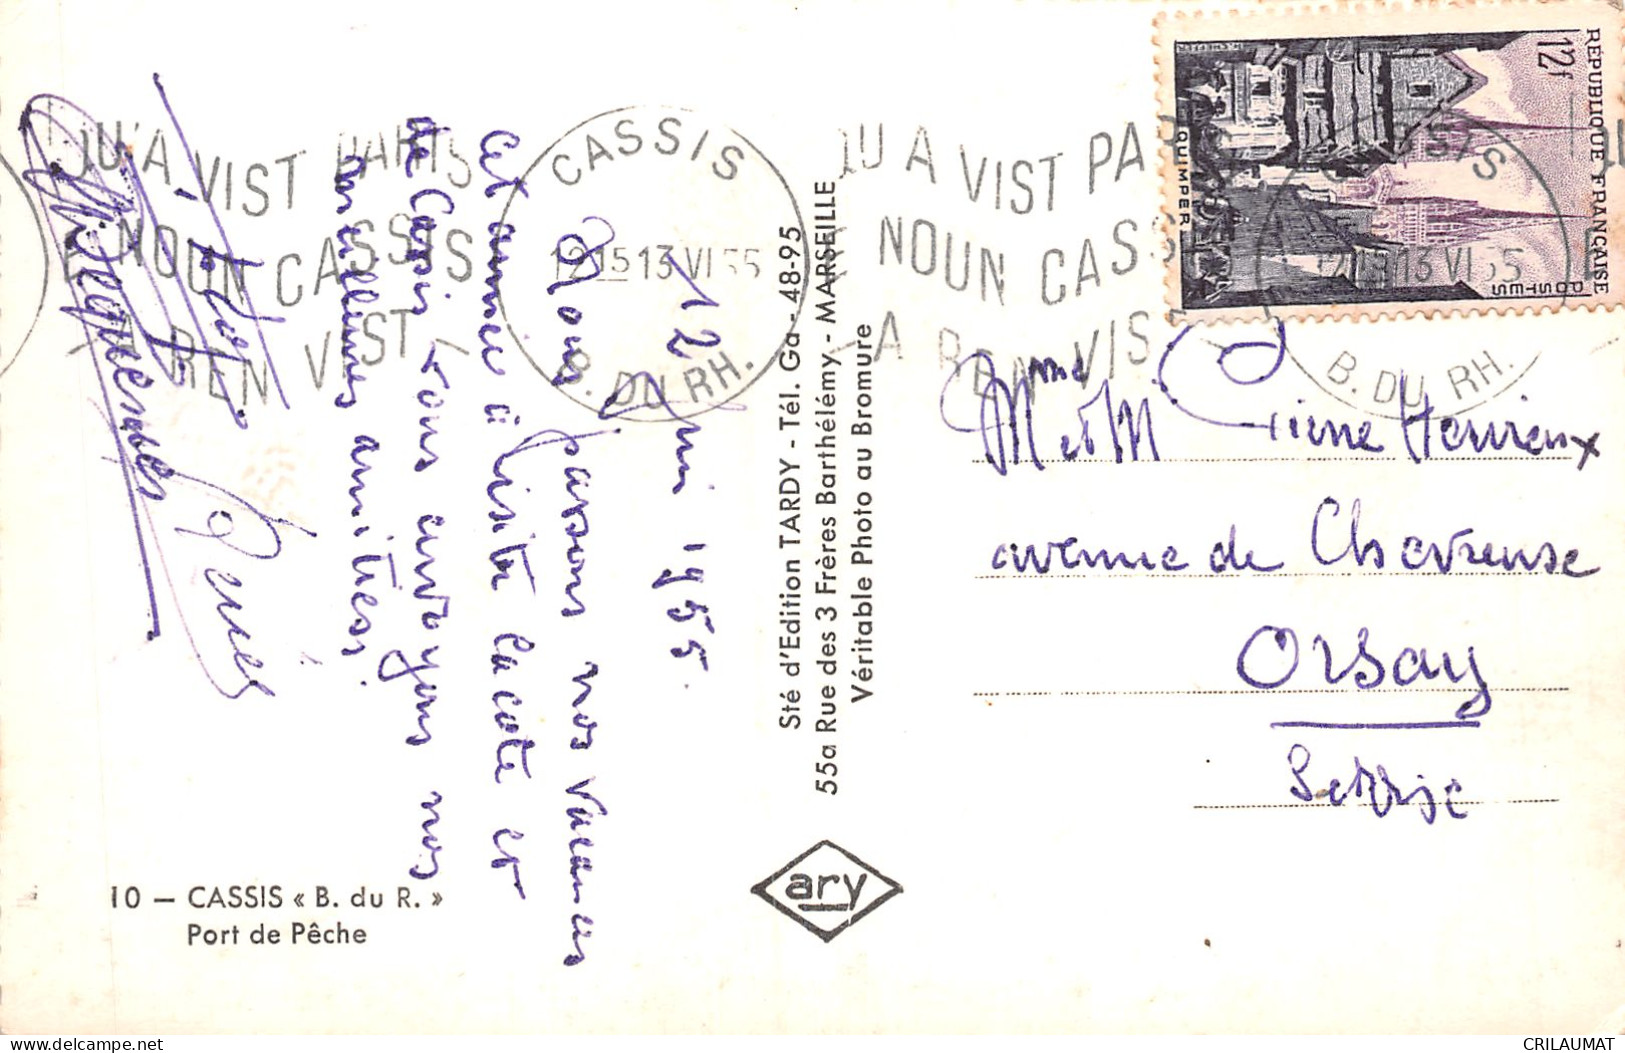 12 Juin 1955.
Nous passons nos vacances
cet année à visiter la cote et
de Cassis vous envoyons nos
meilleures amitiés.
10 — CASSIS « B. du R. »
Port de Pêche
QU'A VIST PARIS
NOUN CASSIS
A REN VIST
CASSIS
12 15 13 VI 55
B. DU RH.
Sté d'Edition TARDY - Tél. Ga - 48-95
55a Rue des 3 Frères Barthélémy - MARSEILLE
Véritable Photo au Bromure
ary
QU'A VIST PARIS
NOUN CASSIS
A REN VIST
CASSIS
13 VI 55
B. DU RH.
RÉPUBLIQUE FRANÇAISE
12f
POSTES
QUIMPER
Mme et M Pierre Henrieux
avenue de Chevreuse
Orsay
S et Oise
CRILAUMAT